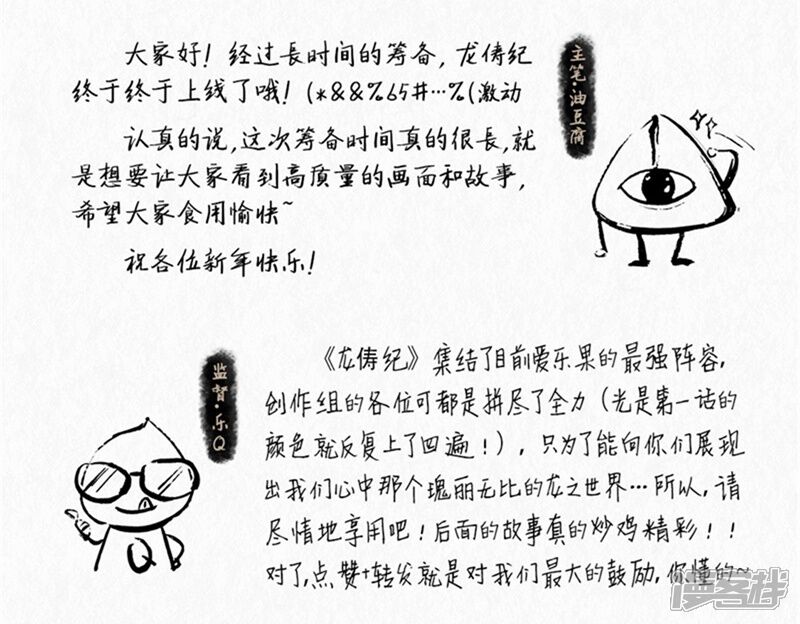 大家好！经过長时间的筹备，龙俦纪
终于终于上线了哦！(*&&%65#…%(激动
认真的说，这次筹备时间真的很長，就
是想要让大家看到高质量的画面和故事，
希望大家食用愉快~
祝各位新年快乐！
主笔·油豆腐
监督·乐Q
《龙俦纪》集结了目前爱乐果的最强阵容，
创作组的各位可都是拼尽了全力（光是第一话的
颜色就反复上了四遍！），只为了能向你们展现
出我们心中那个瑰丽无比的龙之世界…所以，请
尽情地享用吧！后面的故事真的炒鸡精彩！！
对了，点赞+转发就是对我们最大的鼓励，你懂的~
Q
漫客栈